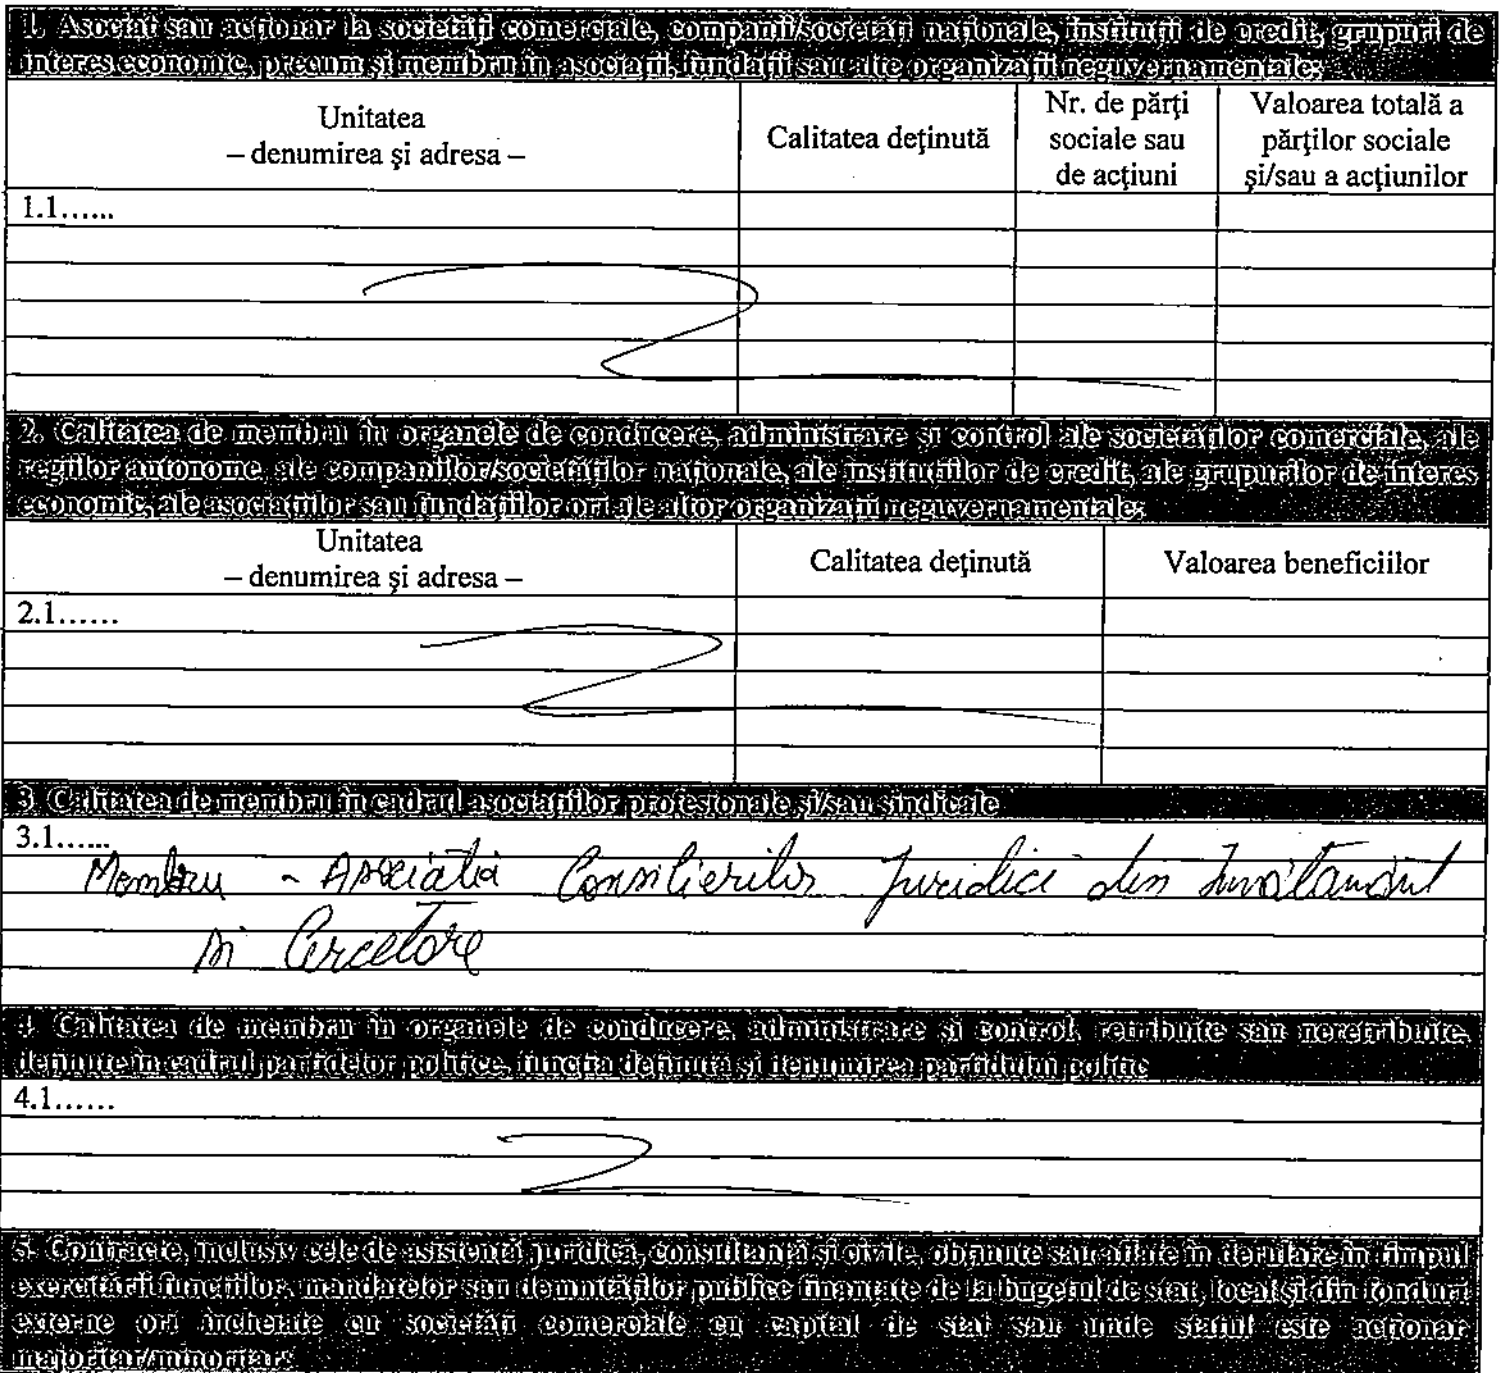 1. Asociat sau acţionar la societăţi comerciale, companii/societăţi naţionale, instituţii de credit, grupuri de
interes economic, precum şi membru în asociaţii, fundaţii sau alte organizaţii neguvernamentale:
Unitatea
– denumirea şi adresa –
Calitatea deţinută
Nr. de părţi
sociale sau
de acţiuni
Valoarea totală a
părţilor sociale
şi/sau a acţiunilor
1.1......
2. Calitatea de membru în organele de conducere, administrare şi control ale societăţilor comerciale, ale
regiilor autonome, ale companiilor/societăţilor naţionale, ale instituţiilor de credit, ale grupurilor de interes
economic, ale asociaţiilor sau fundaţiilor ori ale altor organizaţii neguvernamentale:
Unitatea
– denumirea şi adresa –
Calitatea deţinută
Valoarea beneficiilor
2.1......
3. Calitatea de membru în cadrul asociaţiilor profesionale şi/sau sindicale
3.1......
Membru - Asociatia Consilierilor Juridici din Invătământ
si Cercetare
4. Calitatea de membru în organele de conducere, administrare şi control, retribuite sau neretribuite,
deţinute în cadrul partidelor politice, funcţia deţinută şi denumirea partidului politic
4.1......
5. Contracte, inclusiv cele de asistenţă juridică, consultanţă şi civile, obţinute sau aflate în derulare în timpul
exercitării funcţiilor, mandatelor sau demnităţilor publice finanţate de la bugetul de stat, local şi din fonduri
externe ori încheiate cu societăţi comerciale cu capital de stat sau unde statul este acţionar
majoritar/minoritar: